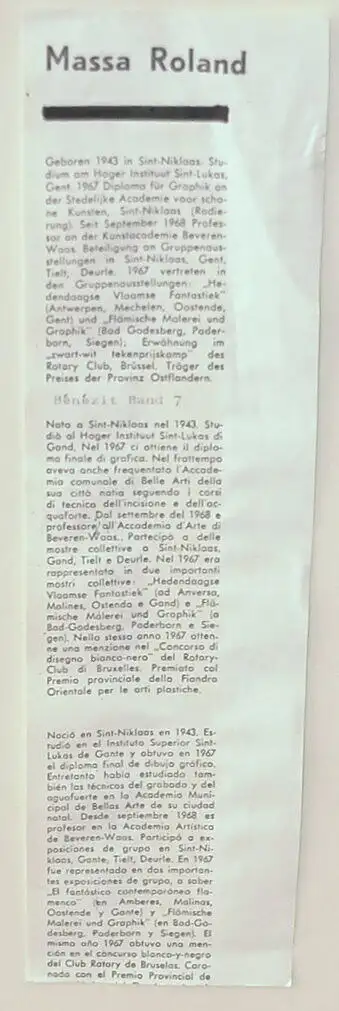 Massa Roland
Geboren 1943 in Sint-Niklaas. Stu-
dium am Hoger Instituut Sint-Lukas,
Gent. 1967 Diploma für Graphik an
der Stedelijke Academie voor scho-
ne Kunsten, Sint-Niklaas (Radie-
rung). Seit September 1968 Profes-
sor an der Kunstacademie Beveren-
Waas. Beteiligung an Gruppenaus-
stellungen in Sint-Niklaas, Gent,
Tielt, Deurle. 1967 vertreten in
den Gruppenausstellungen: „He-
dendaagse Vlaamse Fantastiek"
(Antwerpen, Mechelen, Oostende,
Gent) und „Flämische Malerei und
Graphik" (Bad Godesberg, Pader-
born, Siegen); Erwähnung im
„zwart-wit tekenprijskamp" des
Rotary Club, Brüssel. Träger des
Preises der Provinz Ostflandern.
Bénézit Band 7
Nato a Sint-Niklaas nel 1943. Stu-
diò al Hoger Instituut Sint-Lukas di
Gand. Nel 1967 ci ottiene il diplo-
ma finale di grafica. Nel frattempo
aveva anche frequentato l'Accade-
mia comunale di Belle Arti della
sua città natia seguendo i corsi
di tecnica dell'incisione e dell'ac-
quaforte. Dal settembre del 1968 e
professore all'Accademia d'Arte di
Beveren-Waas. Partecipò a delle
mostre collettive a Sint-Niklaas,
Gand, Tielt e Deurle. Nel 1967 era
rappresentato in due importanti
mostri collettive: „Hedendaagse
Vlaamse Fantastiek" (ad Anversa,
Malines, Ostenda e Gand) e „Flä-
mische Malerei und Graphik" (a
Bad-Godesberg, Paderborn e Sie-
gen). Nello stesso anno 1967 otten-
ne una menzione nel „Concorso di
disegno bianco-nero" del Rotary-
Club di Bruxelles. Premiato col
Premio provinciale della Fiandra
Orientale per le arti plastiche.
Nació en Sint-Niklaas en 1943. Es-
tudió en el Instituto Superior Sint-
Lukas de Gante y obtuvo en 1967
el diploma final de dibujo gráfico.
Entretanto había estudiado tam-
bién las técnicas del grabado y del
aguafuerte en la Academia Muni-
cipal de Bellas Arte de su ciudad
natal. Desde septiembre 1968 es
profesor en la Academia Artística
de Beveren-Waas. Participó a ex-
posiciones de grupo en Sint-Ni-
klaas, Gante, Tielt, Deurle. En 1967
fue representado en dos importan-
tes exposiciones de grupo, a saber
"El fantástico contemporáneo fla-
menco" (en Amberes, Malinas,
Oostende y Gante) y „Flämische
Malerei und Graphik" (en Bad-Go-
desberg, Paderborn y Siegen). El
mismo año 1967 obtuvo una men-
ción en el concurso blanco-y-negro
del Club Rotary de Bruselas. Coro-
nado con el Premio Provincial de